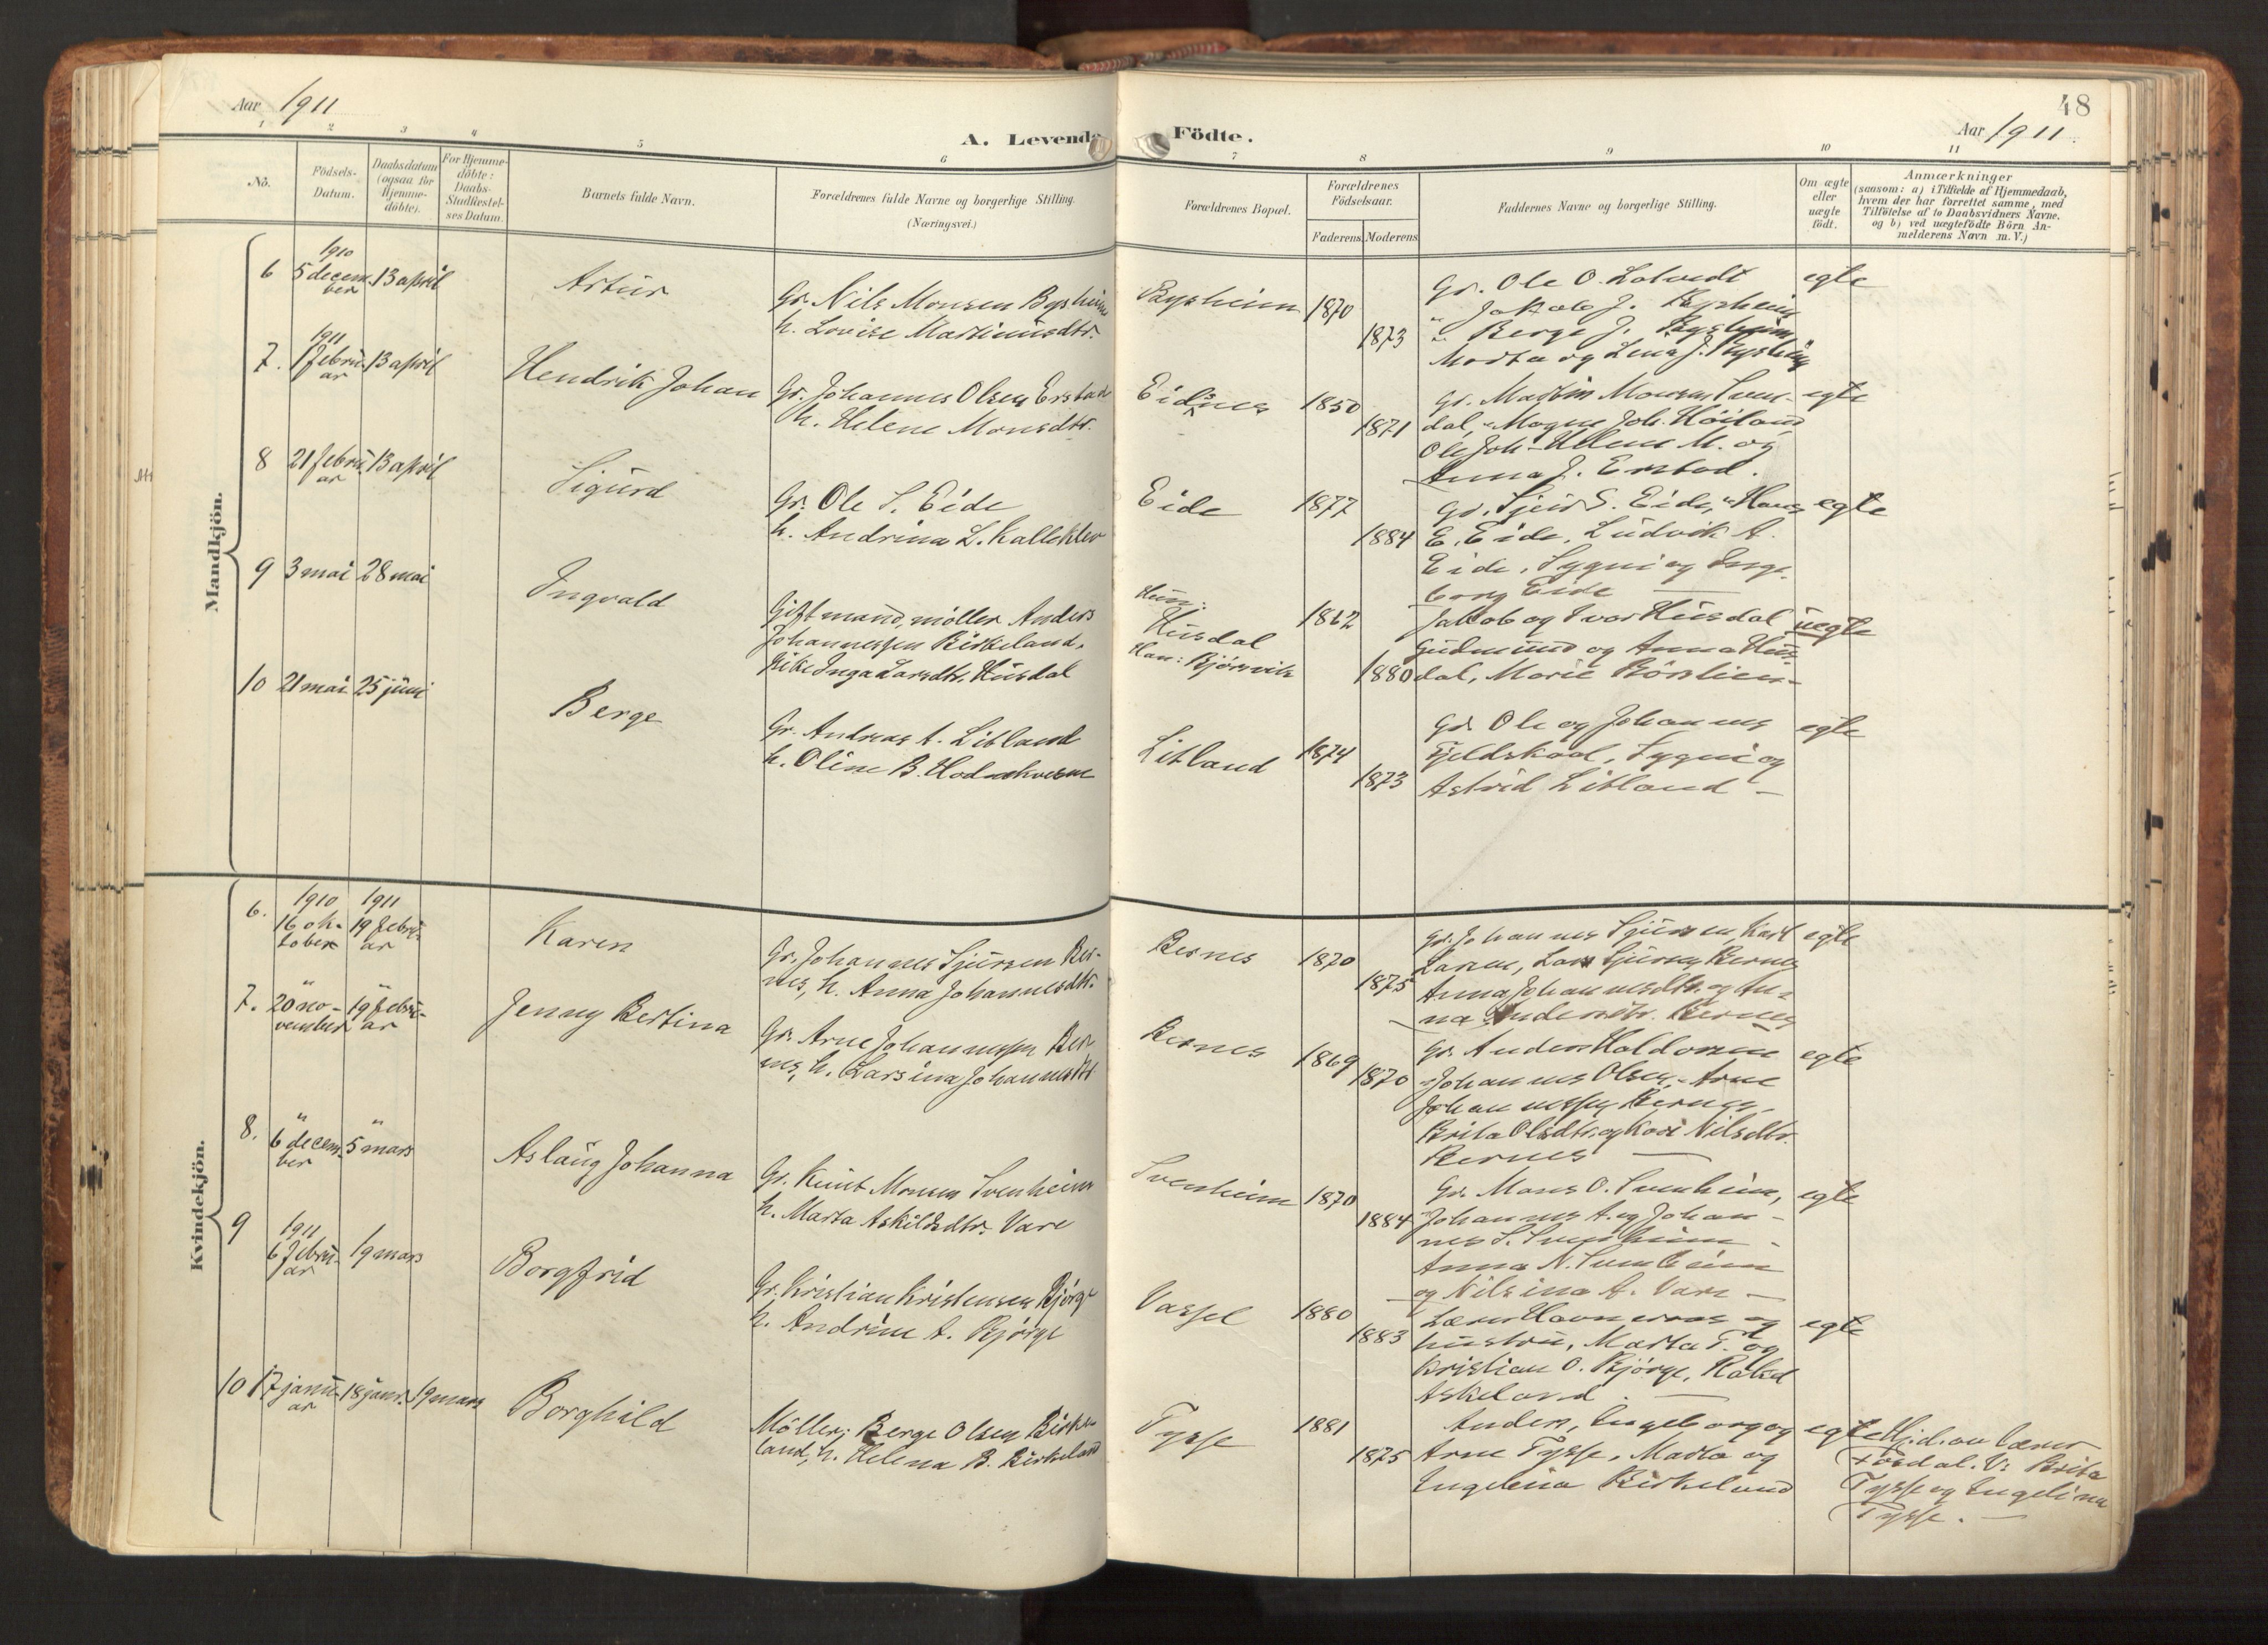 Aar 1911
A. Levende Födte.
48
Aar 1911
1 2 3 4 5 6 7 8 9 10 11
No.
Födsels-Datum.
Daabsdatum (ogsaa for Hjemme-döbte).
For Hjemme-döbte: Daabs-Stadfæstel-ses Datum.
Barnets fulde Navn.
Forældrenes fulde Navne og borgerlige Stilling.
(Næringsvei.)
Forældrenes Bopæl.
Forældrenes Födselsaar.
Faderens. Moderens.
Faddernes Navne og borgerlige Stilling.
Om ægte eller uægte födt.
Anmærkninger
(saasom: a) i Tilfælde af Hjemmedaab,
hvem der har forrettet samme, med
Tilföielse af to Daabsvidners Navne.
og b) ved uægtefödte Börn An-
melderens Navn m. V.)
Mandkjön.
6 1910 5 decem-ber 13 april Artur
Gr. Nils Monsen Bysheim
h. Lovise Martinusdtr.
Bysheim 1870 1873
Gr. Ole O.
" Jakob J. Bysheim
" Berge J. Bysheim
Marta og Lena J. Bysheim
egte
7. 1911 1 febru-ar 13 april Hendrik Johan
Gr. Johannes Olsen Erstad
h. Helene Monsdtr.
Eidsnes 1850 1871
Gr. Martin Monsen Sven-
dal, " Mogne Joh. Höiland
Ole Joh- Helene M. og
Anna J. Erstad.
egte
8 21 febru-ar 13 april Sigurd
Gr. Ole S. Eide
h. Andrina L. Kallekler
Eide 1877 1884
Gr. Sjur S. Eide, " Hans
E. Eide, Ludvik A.
Eide, Sygni og Inge-
borg Eide
egte
9 3 mai 28 mai Ingvald
Gift mand, møller Anders
Johannessen Birkeland,
Pike Inga Larsdtr. Husdal
Hun:
Husdal
Han: Bjørsvik
1862 1880
Jakob og Ivar Husdal
Gudmund og Anna Hus-
dal, Marie
uegte
10 21 mai 25 juni Berge
Gr. Andreas A. Litland
h. Oline B. Hodnekvam
Litland 1874 1873
Gr. Ole og Johannes
Fjeldskaal, Sygni og
Astrid Litland -
egte
Kvindekjön.
6. 1910 16 ok-tober 1911 19 febru-ar Karen
Gr. Johannes Sjursen Ber-
nes, h. Anna Johannesdtr.
Bernes 1870 1875
Gr. Johannes Sjursen, Karl
Larsen, Lars Sjursen Bernes
Anna Johannesdtr. og An-
na Andersdtr. Bernes
egte
7. " 20 no-vember " 19 febru-ar Jenny Bertina
Gr. Arne Johannessen Ber-
nes, h. Larsina Johannesdtr.
Bernes 1869 1870
Gr. Anders Haldorsen
" Johannes Olsen, - Arne
Johannessen Bernes,
Brita Olsdtr. og Kari Nilsdtr.
Bernes
egte
8. " 6 decem-ber " 5 mars Aslaug Johanna
Gr. Knut Monsen Svenheim
h. Marta Askildsdtr. Vare
Svenheim 1870 1884
Gr. Mons O. Svenheim,
" Johannes A. og Johan-
nes S. Svenheim -
Anna N. Svenheim
og Nilsina A. Vare -
egte
9 1911 6 febru-ar 19 mars Borgfrid
Gr. Kristian Kristensen Bjørge
h. Andrine A. Bjørge
Vassel 1880 1883
Lærer og
hustru, Marta T. og
Kristian O. Bjørge, Rakel
Askeland.
egte
10 17 janu-ar 18 janr. 19 mars Borghild
Møller: Berge Olsen Birke-
land, h. Helena B. Birkeland
Tysse 1881 1875
Anders, Ingeborg og
Arne Tysse, Marta og
Engelina Birkeland
egte
Hj. d. av Lærer
Fosdal. V: Brita
Tysse og Engelina
Tysse. -